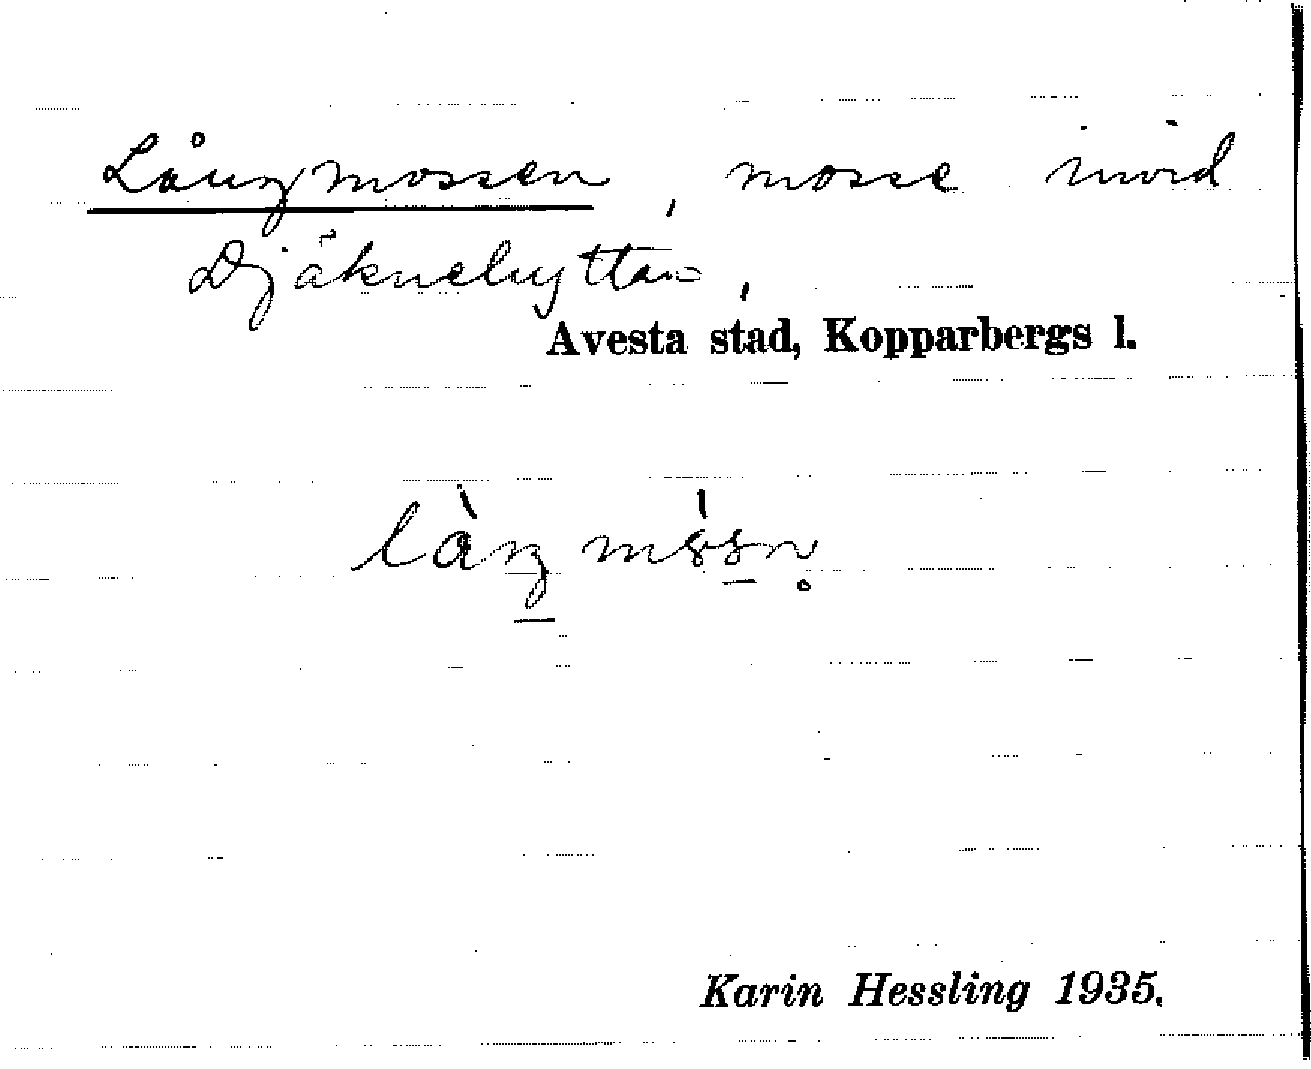 Långmossen, mosse invid
Djäknehyttan,
Avesta stad, Kopparbergs l.
Karin Hessling 1935.